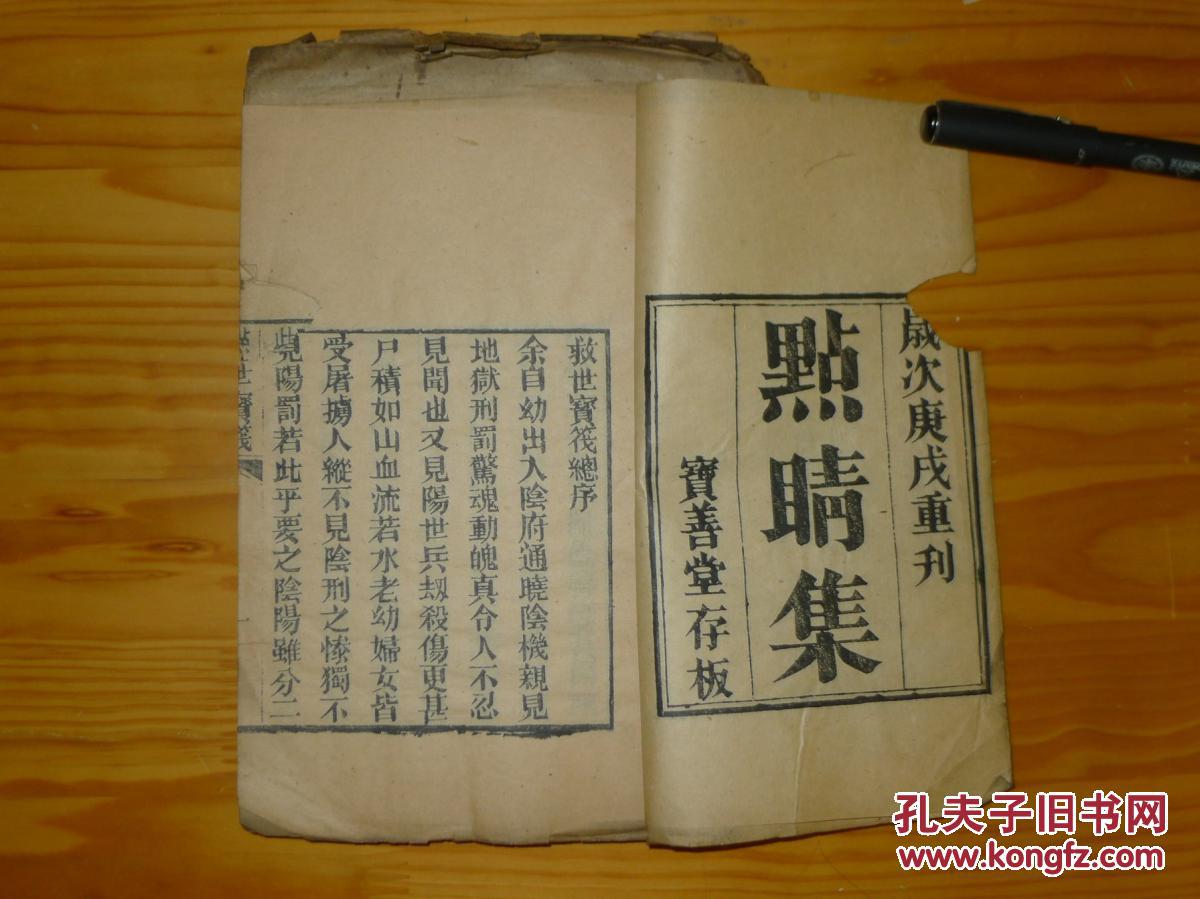 歲次庚戌重刊
點睛集
寶善堂存板
救世寶筏總序
余自幼出入陰府通曉陰機親見
地獄刑罰驚魂動魄真令人不忍
見聞也又見陽世兵刼殺傷更甚
尸積如山血流若水老幼婦女皆
受屠擄人縱不見陰刑之慘獨不
覩陽罰若此乎要之陰陽雖分二
世寶筏
孔夫子旧书网
www.kongfz.com